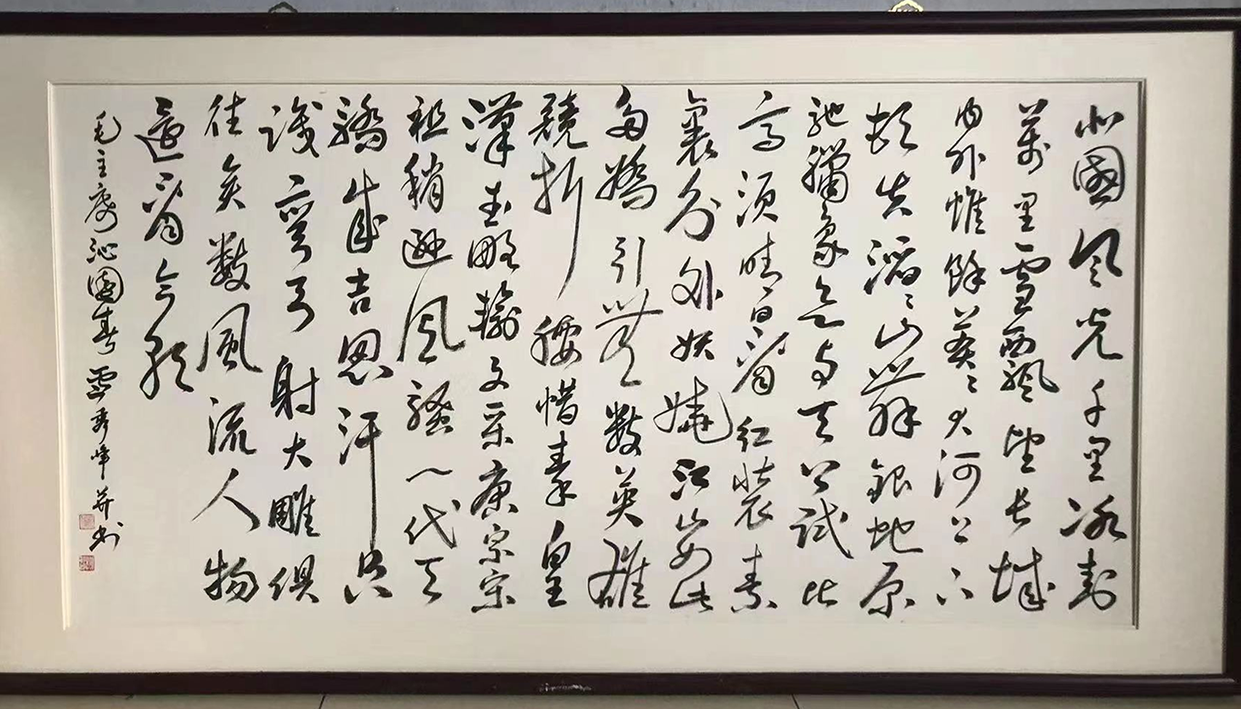 北國风光千里冰封
萬里雪飄望长城
内外惟餘莽々大河上下
頓失滔々山舞銀蛇原
驰臘象欲与天公试比
高须晴日看红装素
裹分外妖娆江山如此
多嬌引無数英雄
競折腰惜秦皇
漢武略输文采唐宗宋
祖稍逊风骚一代天
驕成吉思汗只
識彎弓射大雕俱
往矣数風流人物
還看今朝
毛主席沁園春雪秀峰书